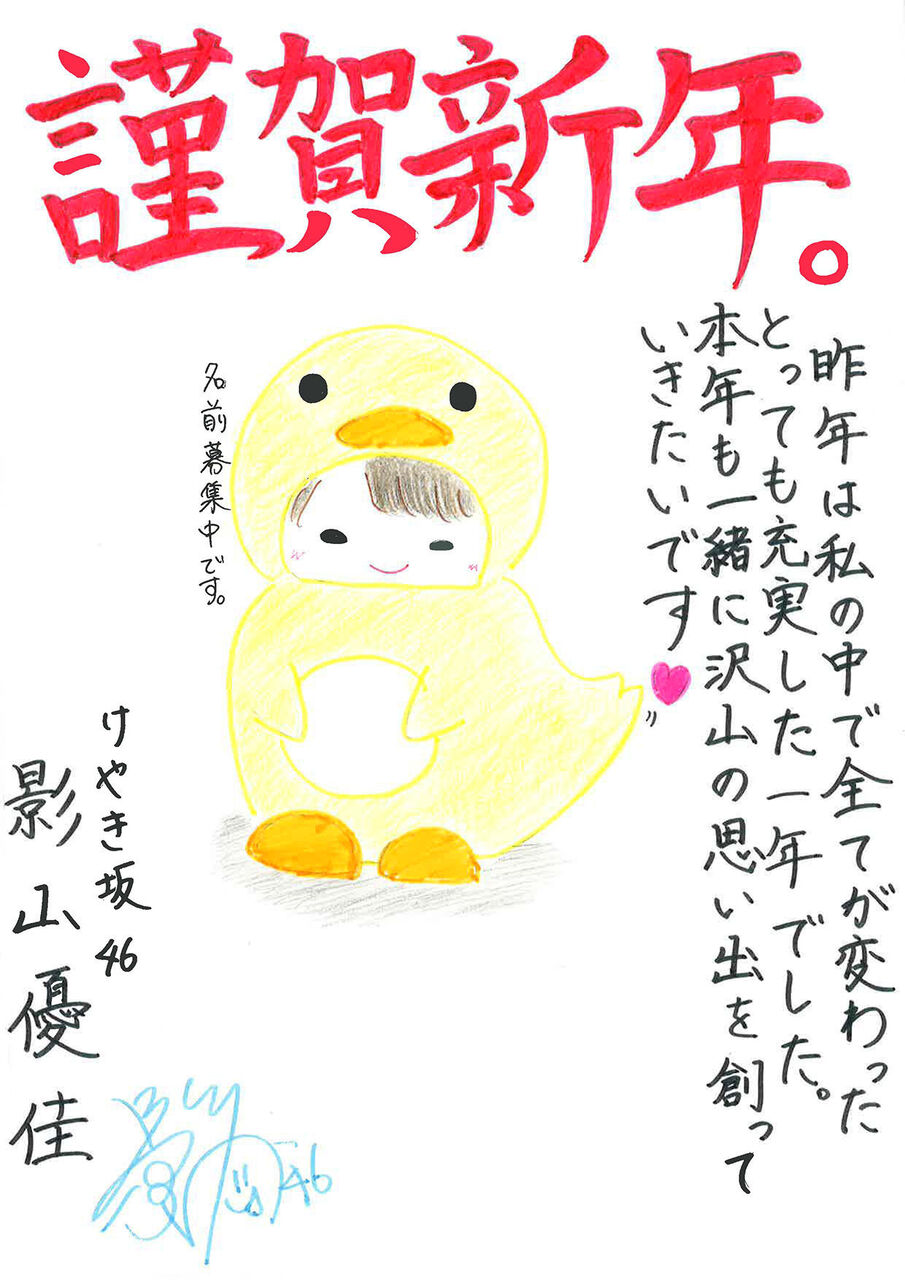 謹賀新年。
昨年は私の中で全てが変わった
とっても充実した一年でした。
本年も一緒に沢山の思い出を創って
いきたいです
名前募集中です。
けやき坂46
影山優佳
46